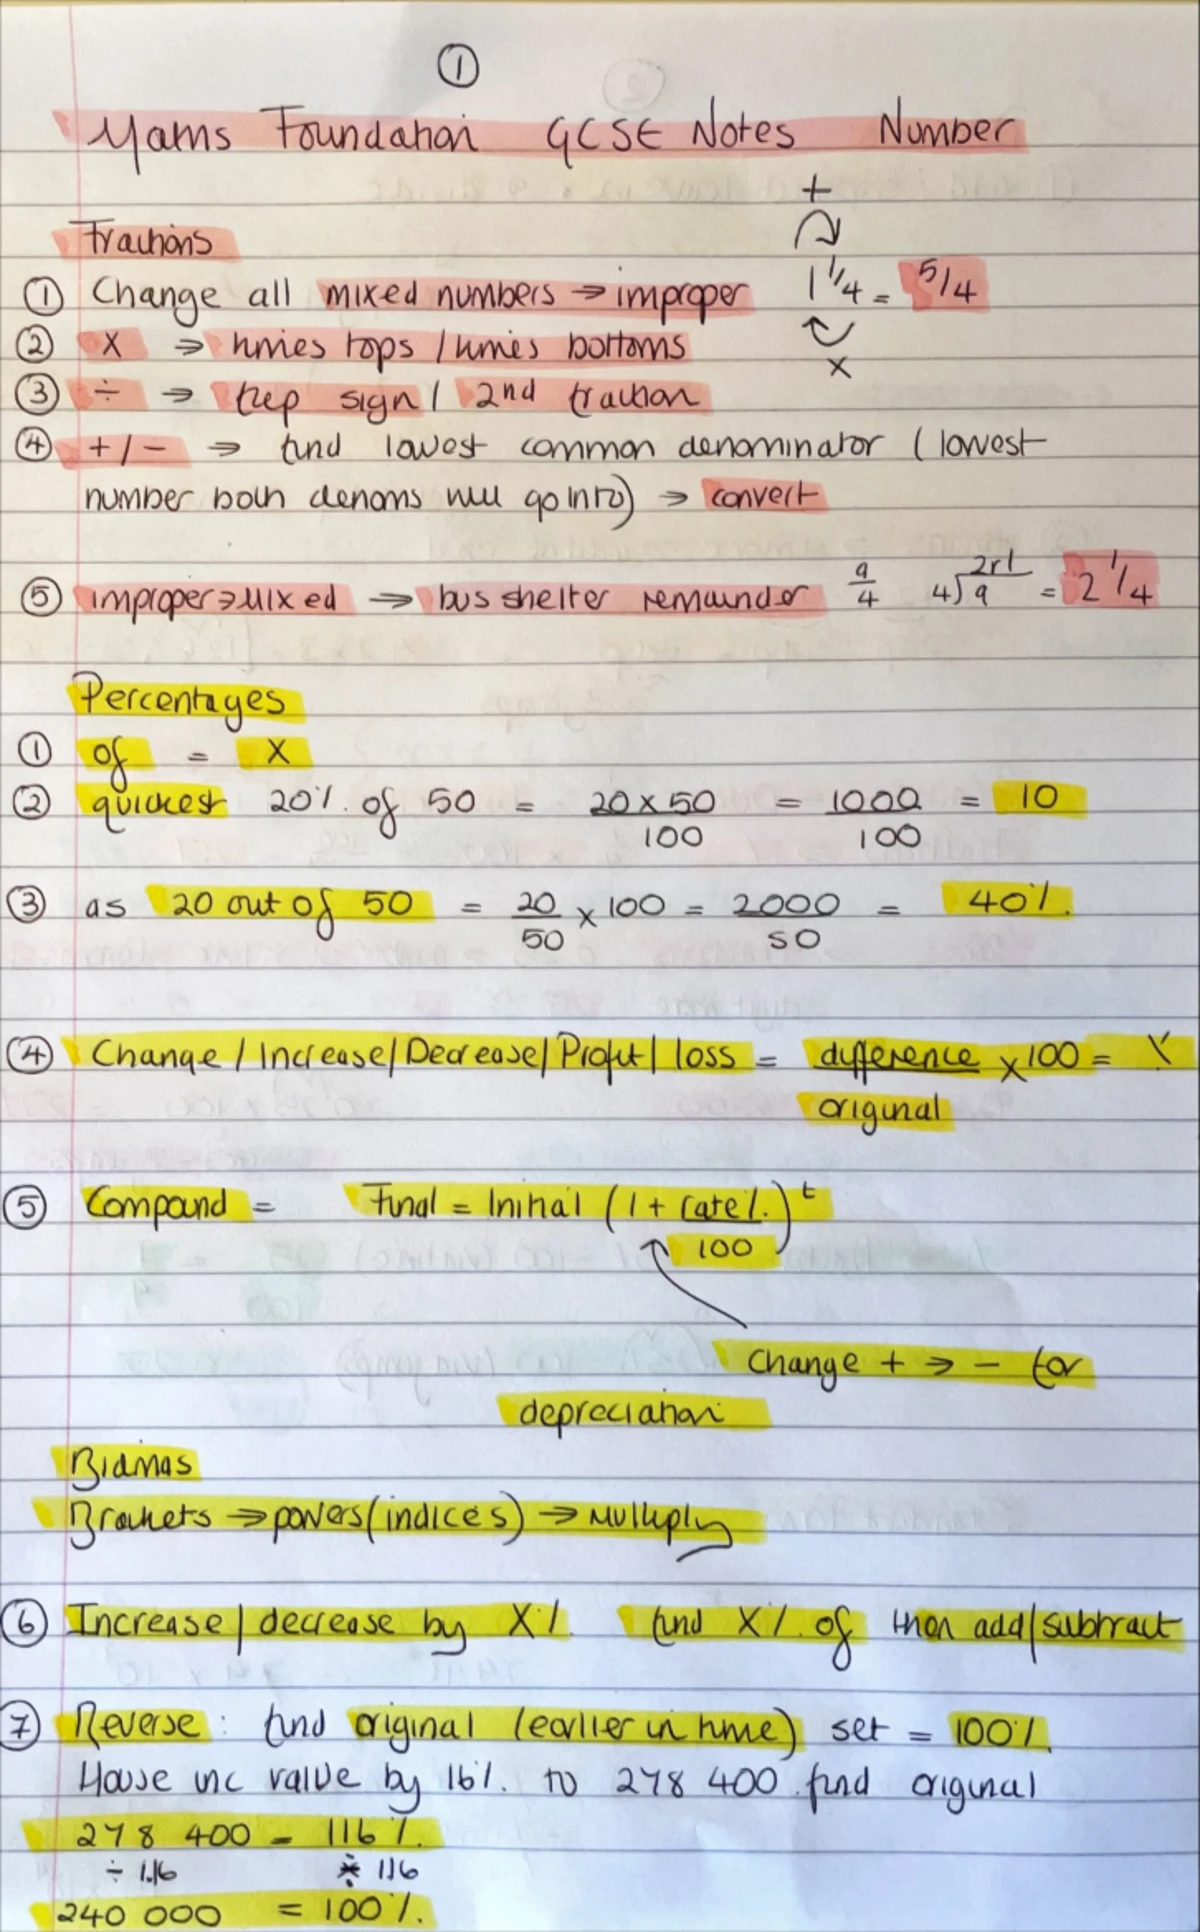 ①
Maths Foundation GCSE Notes Number
+
Fractions
① Change all mixed numbers → improper 1 1/4 = 5/4
② x → times tops / times bottoms
x
③ ÷ → flip sign / 2nd fraction
④ +/- → find lowest common denominator (lowest
number both denoms will go into) → convert
⑤ improper → Mixed → bus shelter remainder 9/4 4)9 2r1 = 2 1/4
Percentages
① of = x
② quickest 20% of 50 = 20 x 50 / 100 = 1000 / 100 = 10
③ as 20 out of 50 = 20/50 x 100 = 2000/50 = 40%
④ Change / Increase / Decrease / Profit / loss = difference / original x 100 =
⑤ Compound = Final = Initial (1 + rate% / 100)^t
Change + → - for
depreciation
Bidmas
Brackets → powers (indices) → Multiply
⑥ Increase / decrease by X% find X% of then add / subtract
⑦ Reverse : find original (earlier in time) set = 100%.
House inc value by 16% to 278 400 find original
278 400 = 116%.
÷ 1.16 ÷ 116
240 000 = 100%.